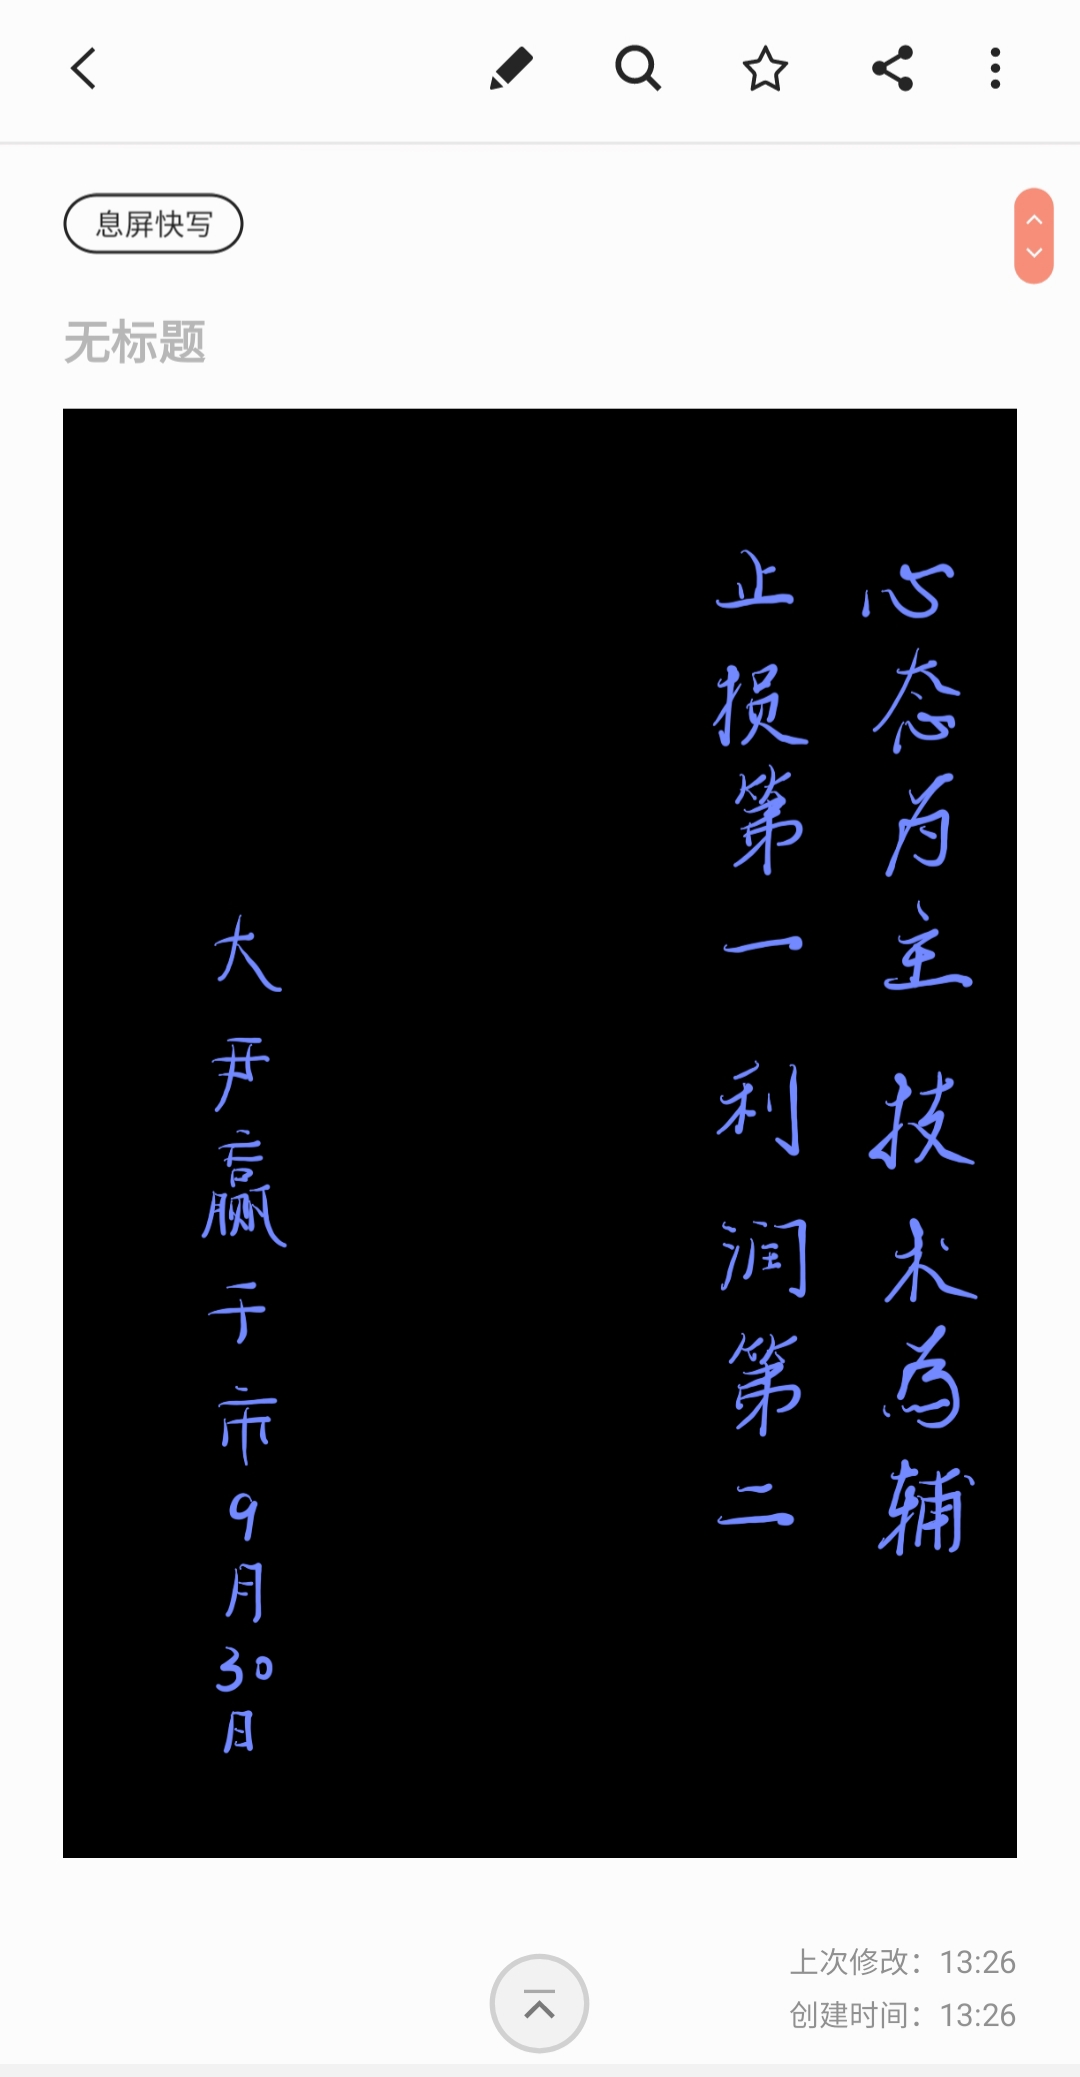 息屏快写
无标题
心态为主技术為辅
止损第一利润第二
大尹赢于市9月30日
上次修改：13:26
创建时间：13:26